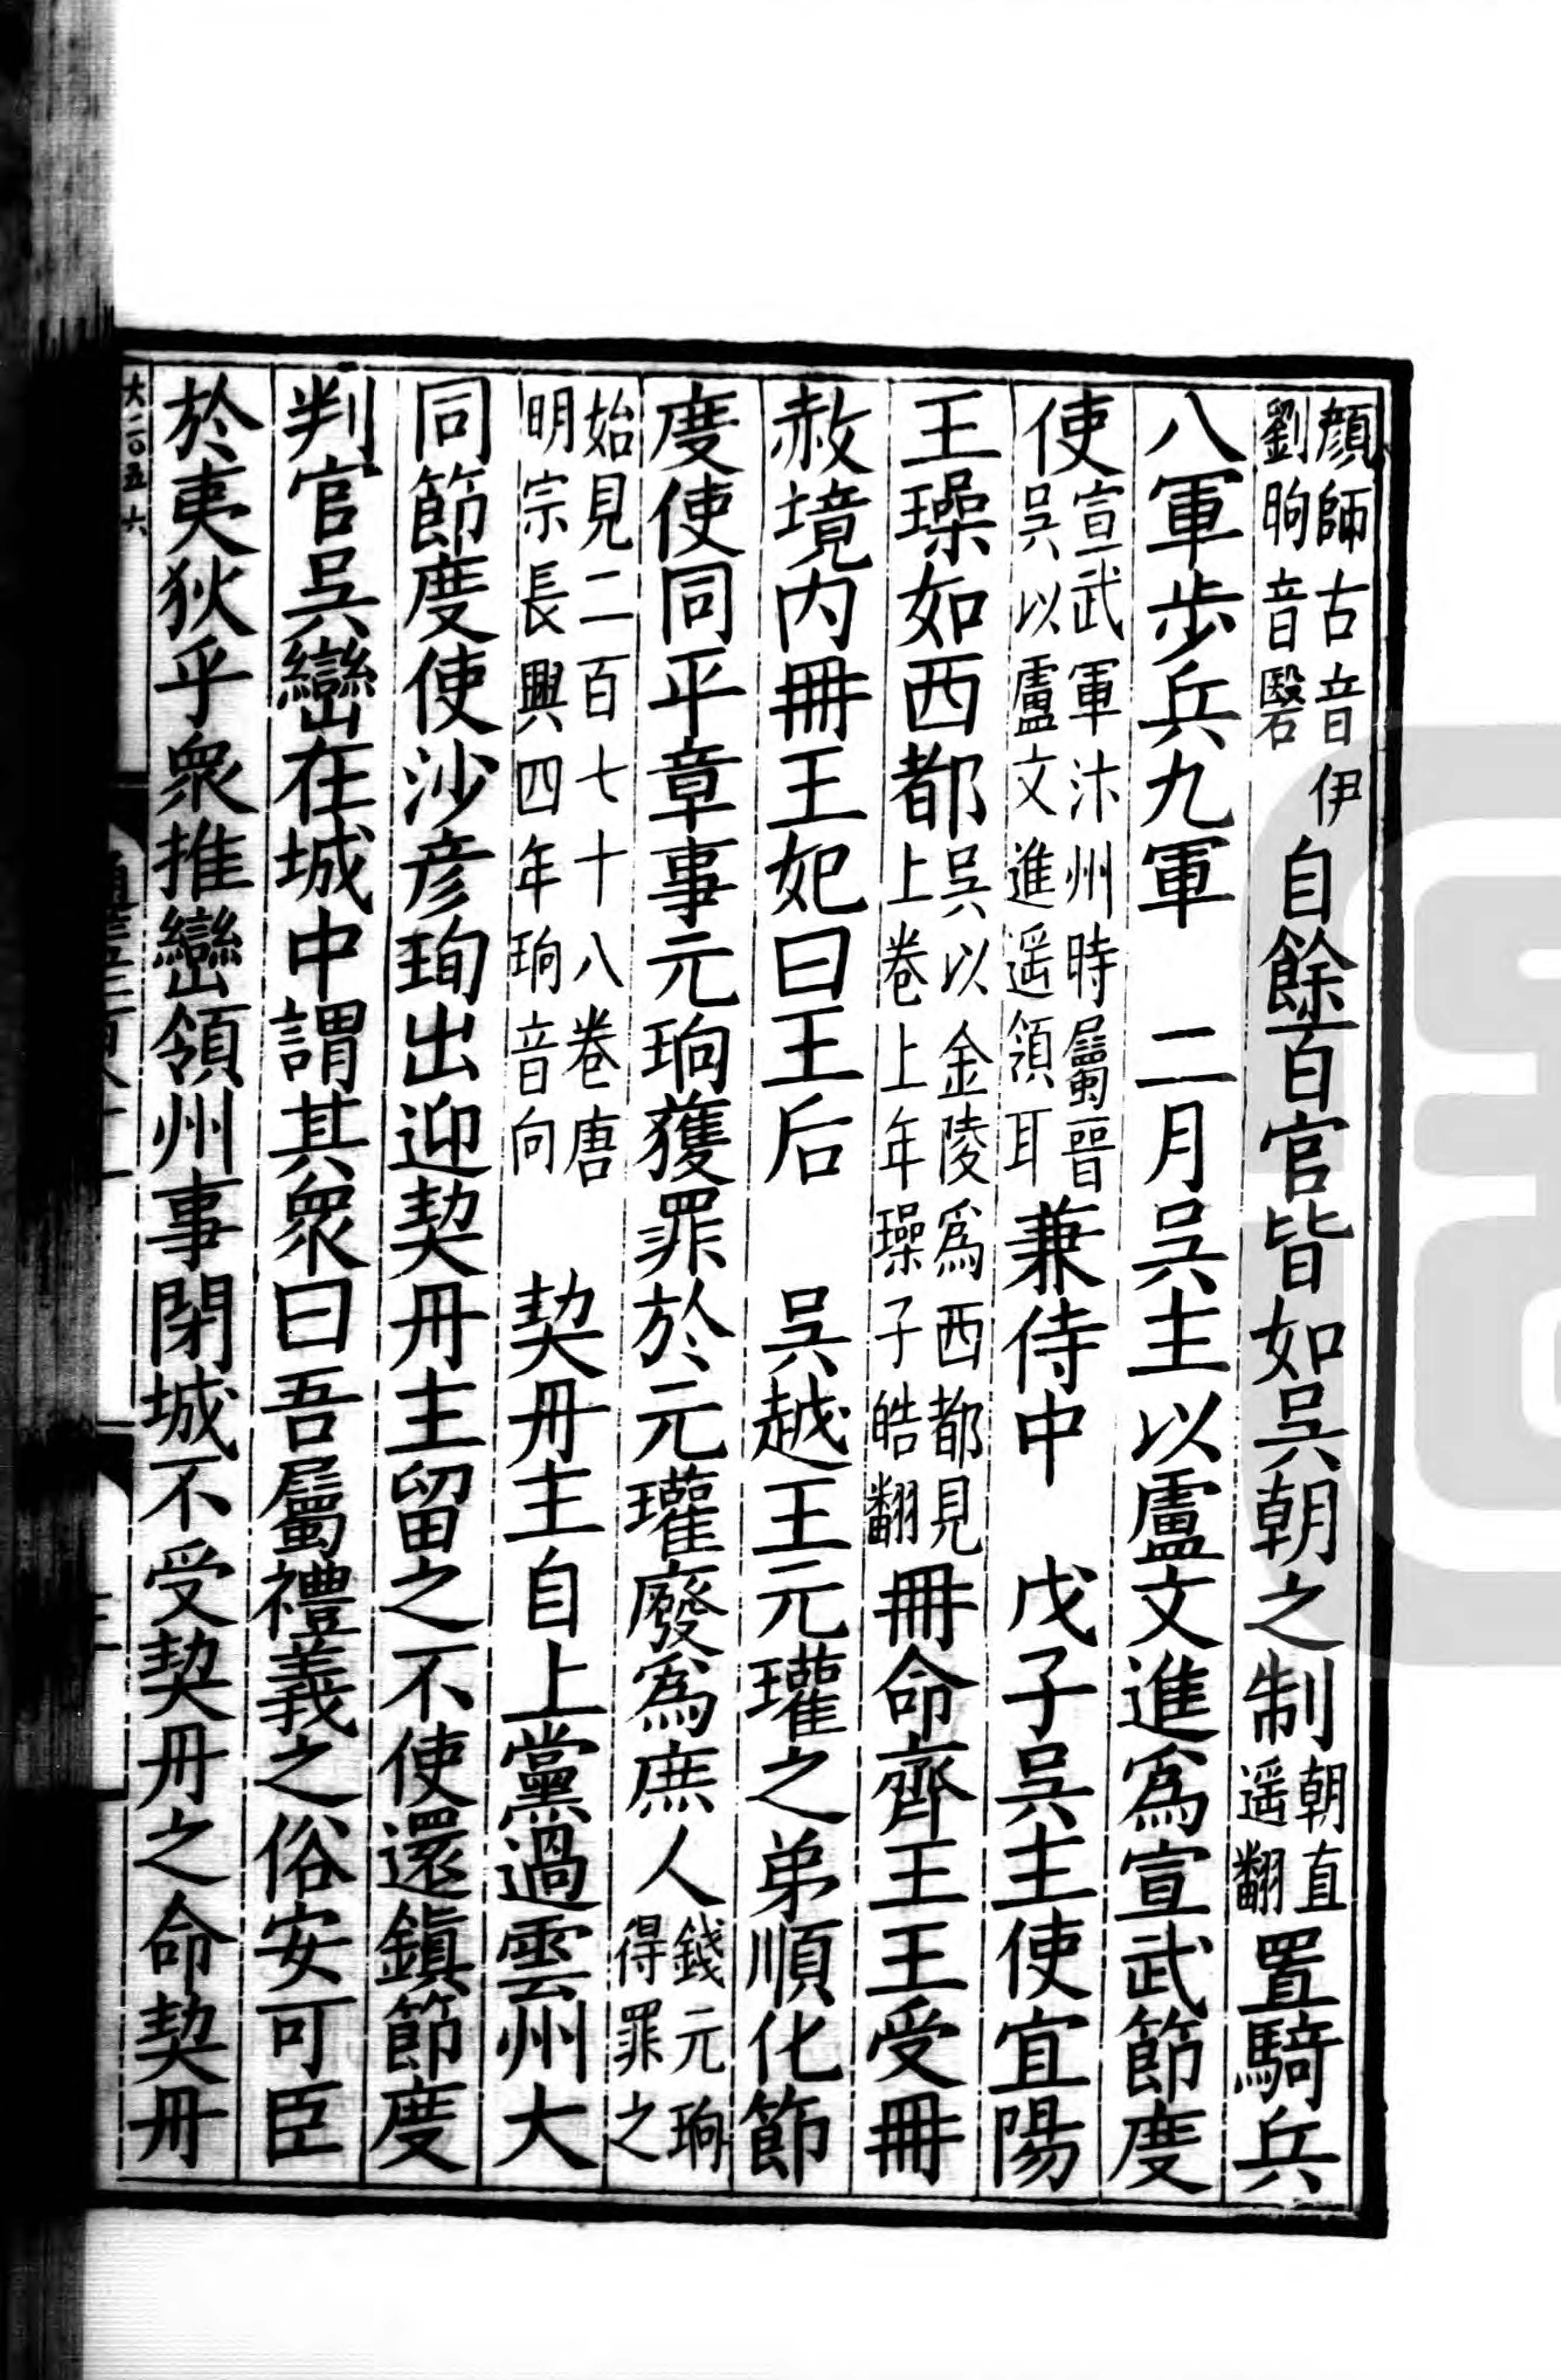 顔師古音伊劉昫音毉自餘百官皆如吳朝之制朝直遥翻置騎兵
八軍步兵九軍　二月吳主以盧文進爲宣武節度
使宣武軍汴州時屬晉吳以盧文進遥領耳兼侍中　戊子吳主使宜陽
王璪如西都吳以金陵爲西都見上卷上年璪子皓翻冊命齊王王受冊
赦境内冊王妃曰王后　吳越王元瓘之弟順化節
度使同平章事元珦獲罪於元瓘廢爲庶人錢元珦得罪之
始見二百七十八卷唐明宗長興四年珦音向　契丹主自上黨過雲州大
同節度使沙彦珣出迎契丹主留之不使還鎮節度
判官吳巒在城中謂其衆曰吾屬禮義之俗安可臣
於夷狄乎衆推巒領州事閉城不受契丹之命契丹
大二百五 六